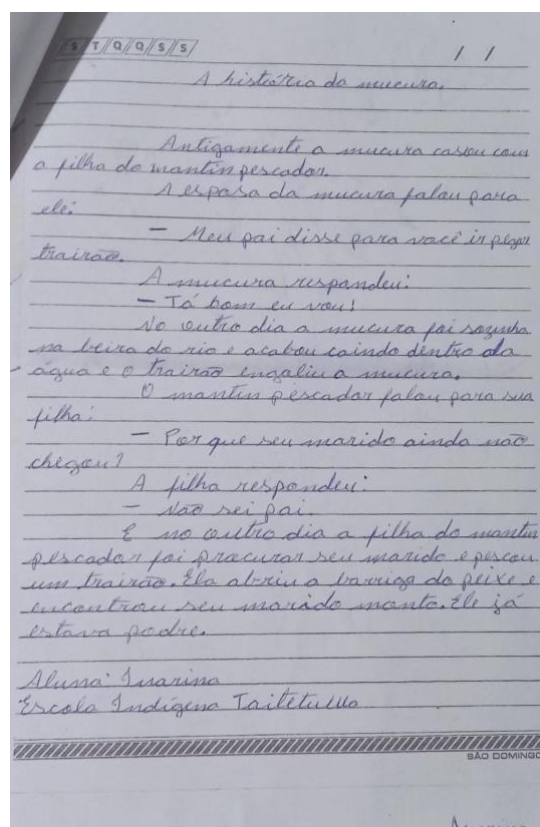 S T Q Q S S
/ /
A história da mucura.
Antigamente a mucura casou com
a filha do mantin pescador.
A esposa da mucura falou para
ele:
— Meu pai disse para você ir pegar
trairão.
A mucura respondeu:
— Tá bom eu vou!
No outro dia a mucura foi sozinha
na beira do rio e acabou caindo dentro da
água e o trairão engoliu a mucura.
O mantin pescador falou para sua
filha:
— Por que seu marido ainda não
chegou?
A filha respondeu:
— Não sei pai.
E no outro dia a filha do mantin
pescador foi procurar seu marido e pescou
um trairão. Ela abriu a barriga do peixe e
encontrou seu marido monto. Ele já
estava podre.
Aluna:
Escola Indígena
SÃO DOMINGO